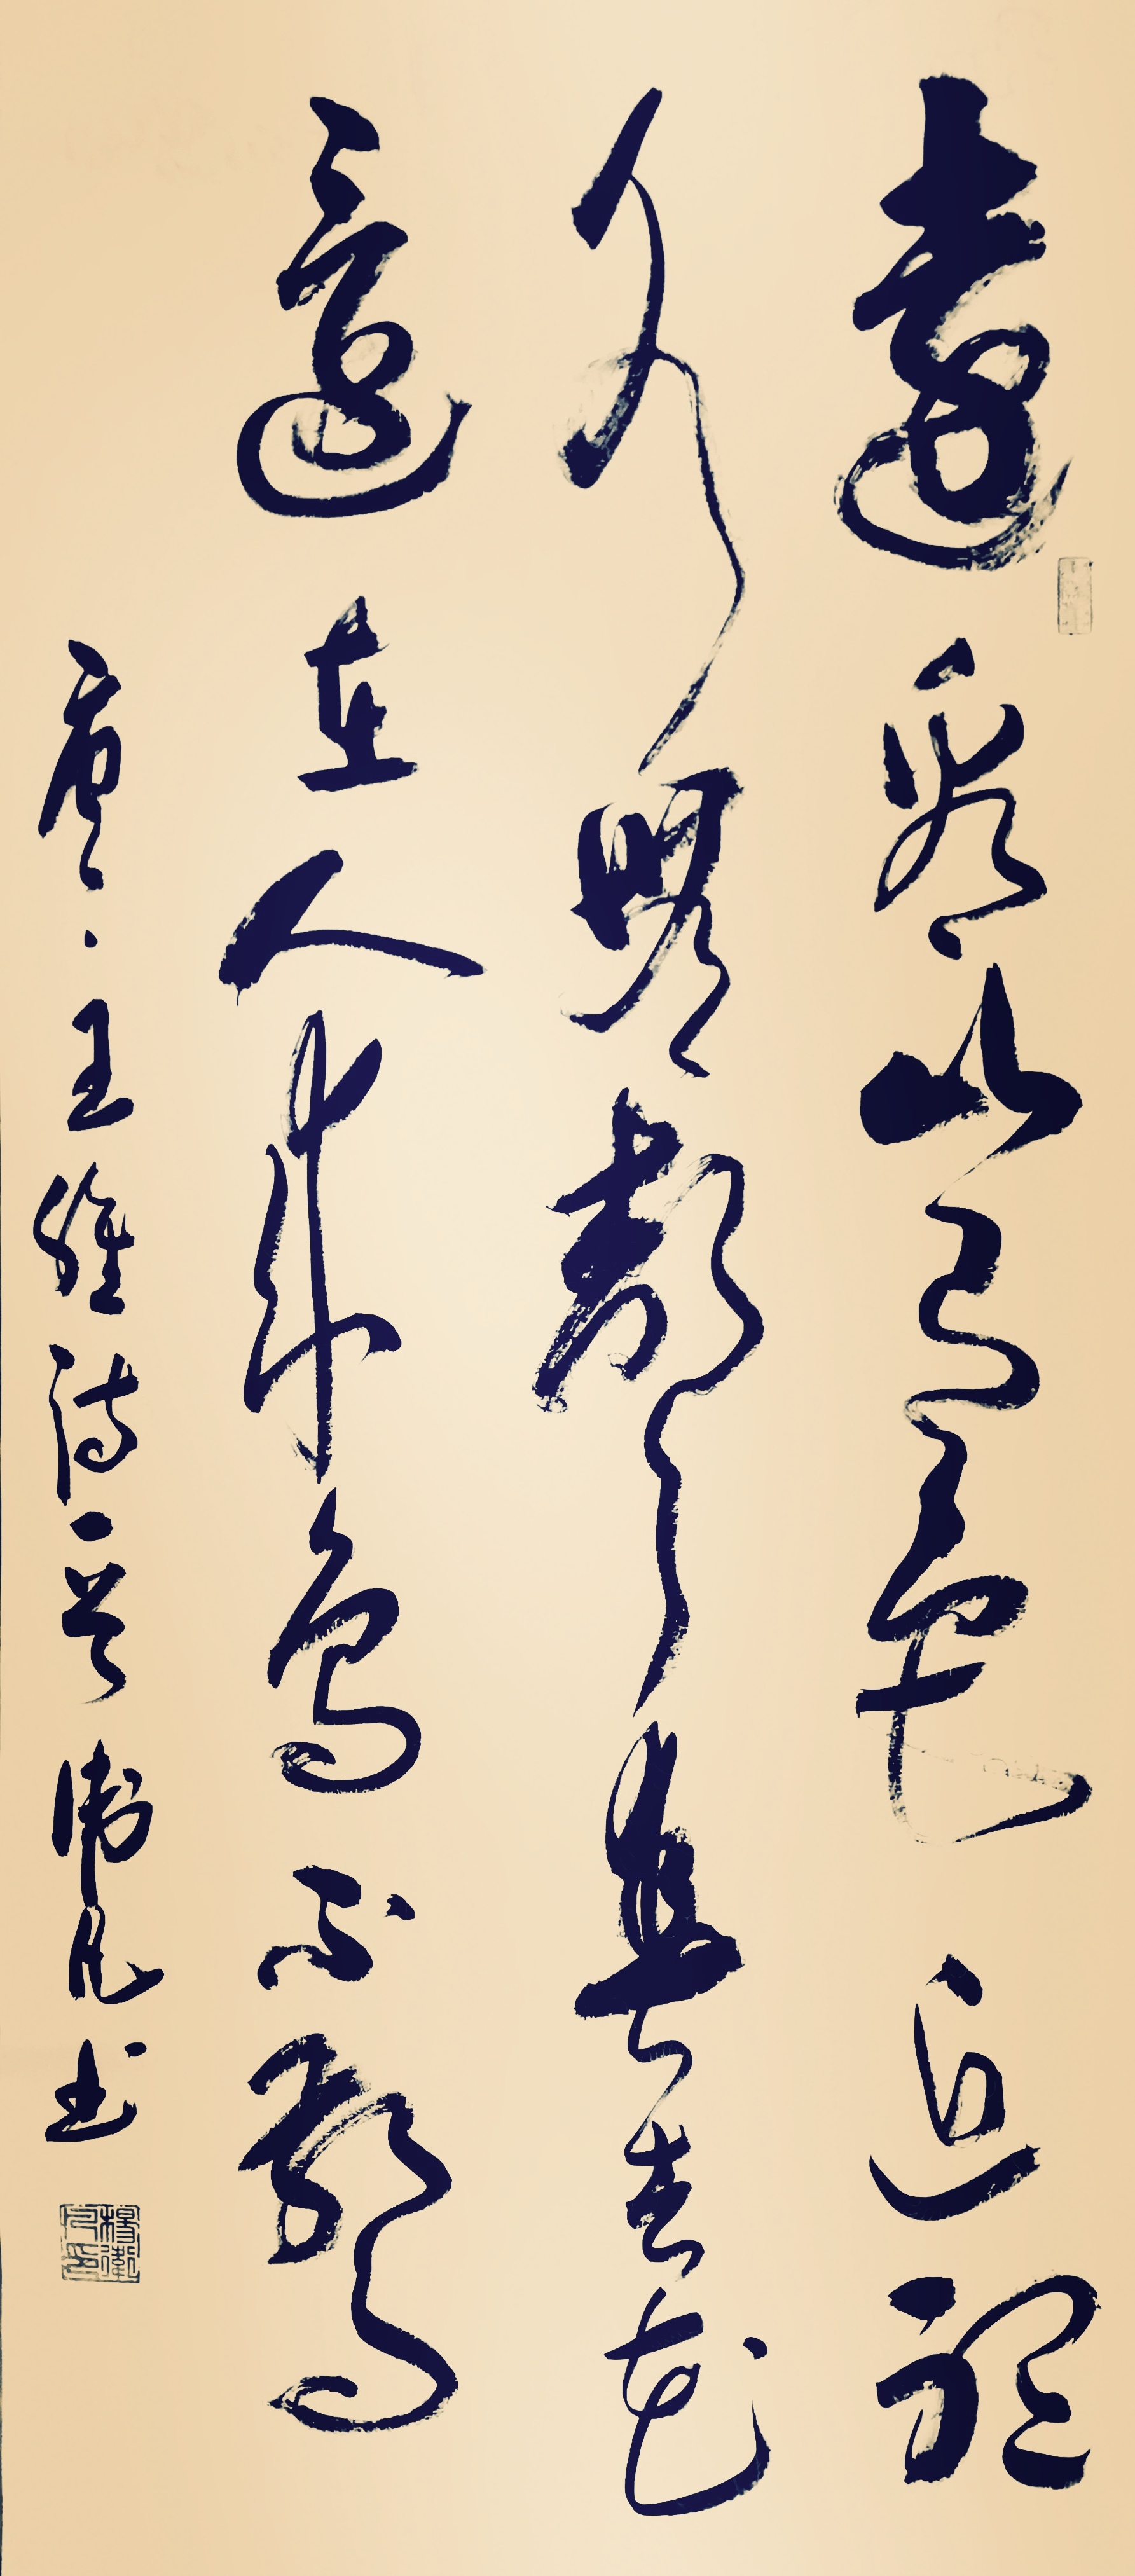 遠看山有色近聽
水無聲春去花
還在人來鳥不驚
唐·王維詩一首 衛凡书